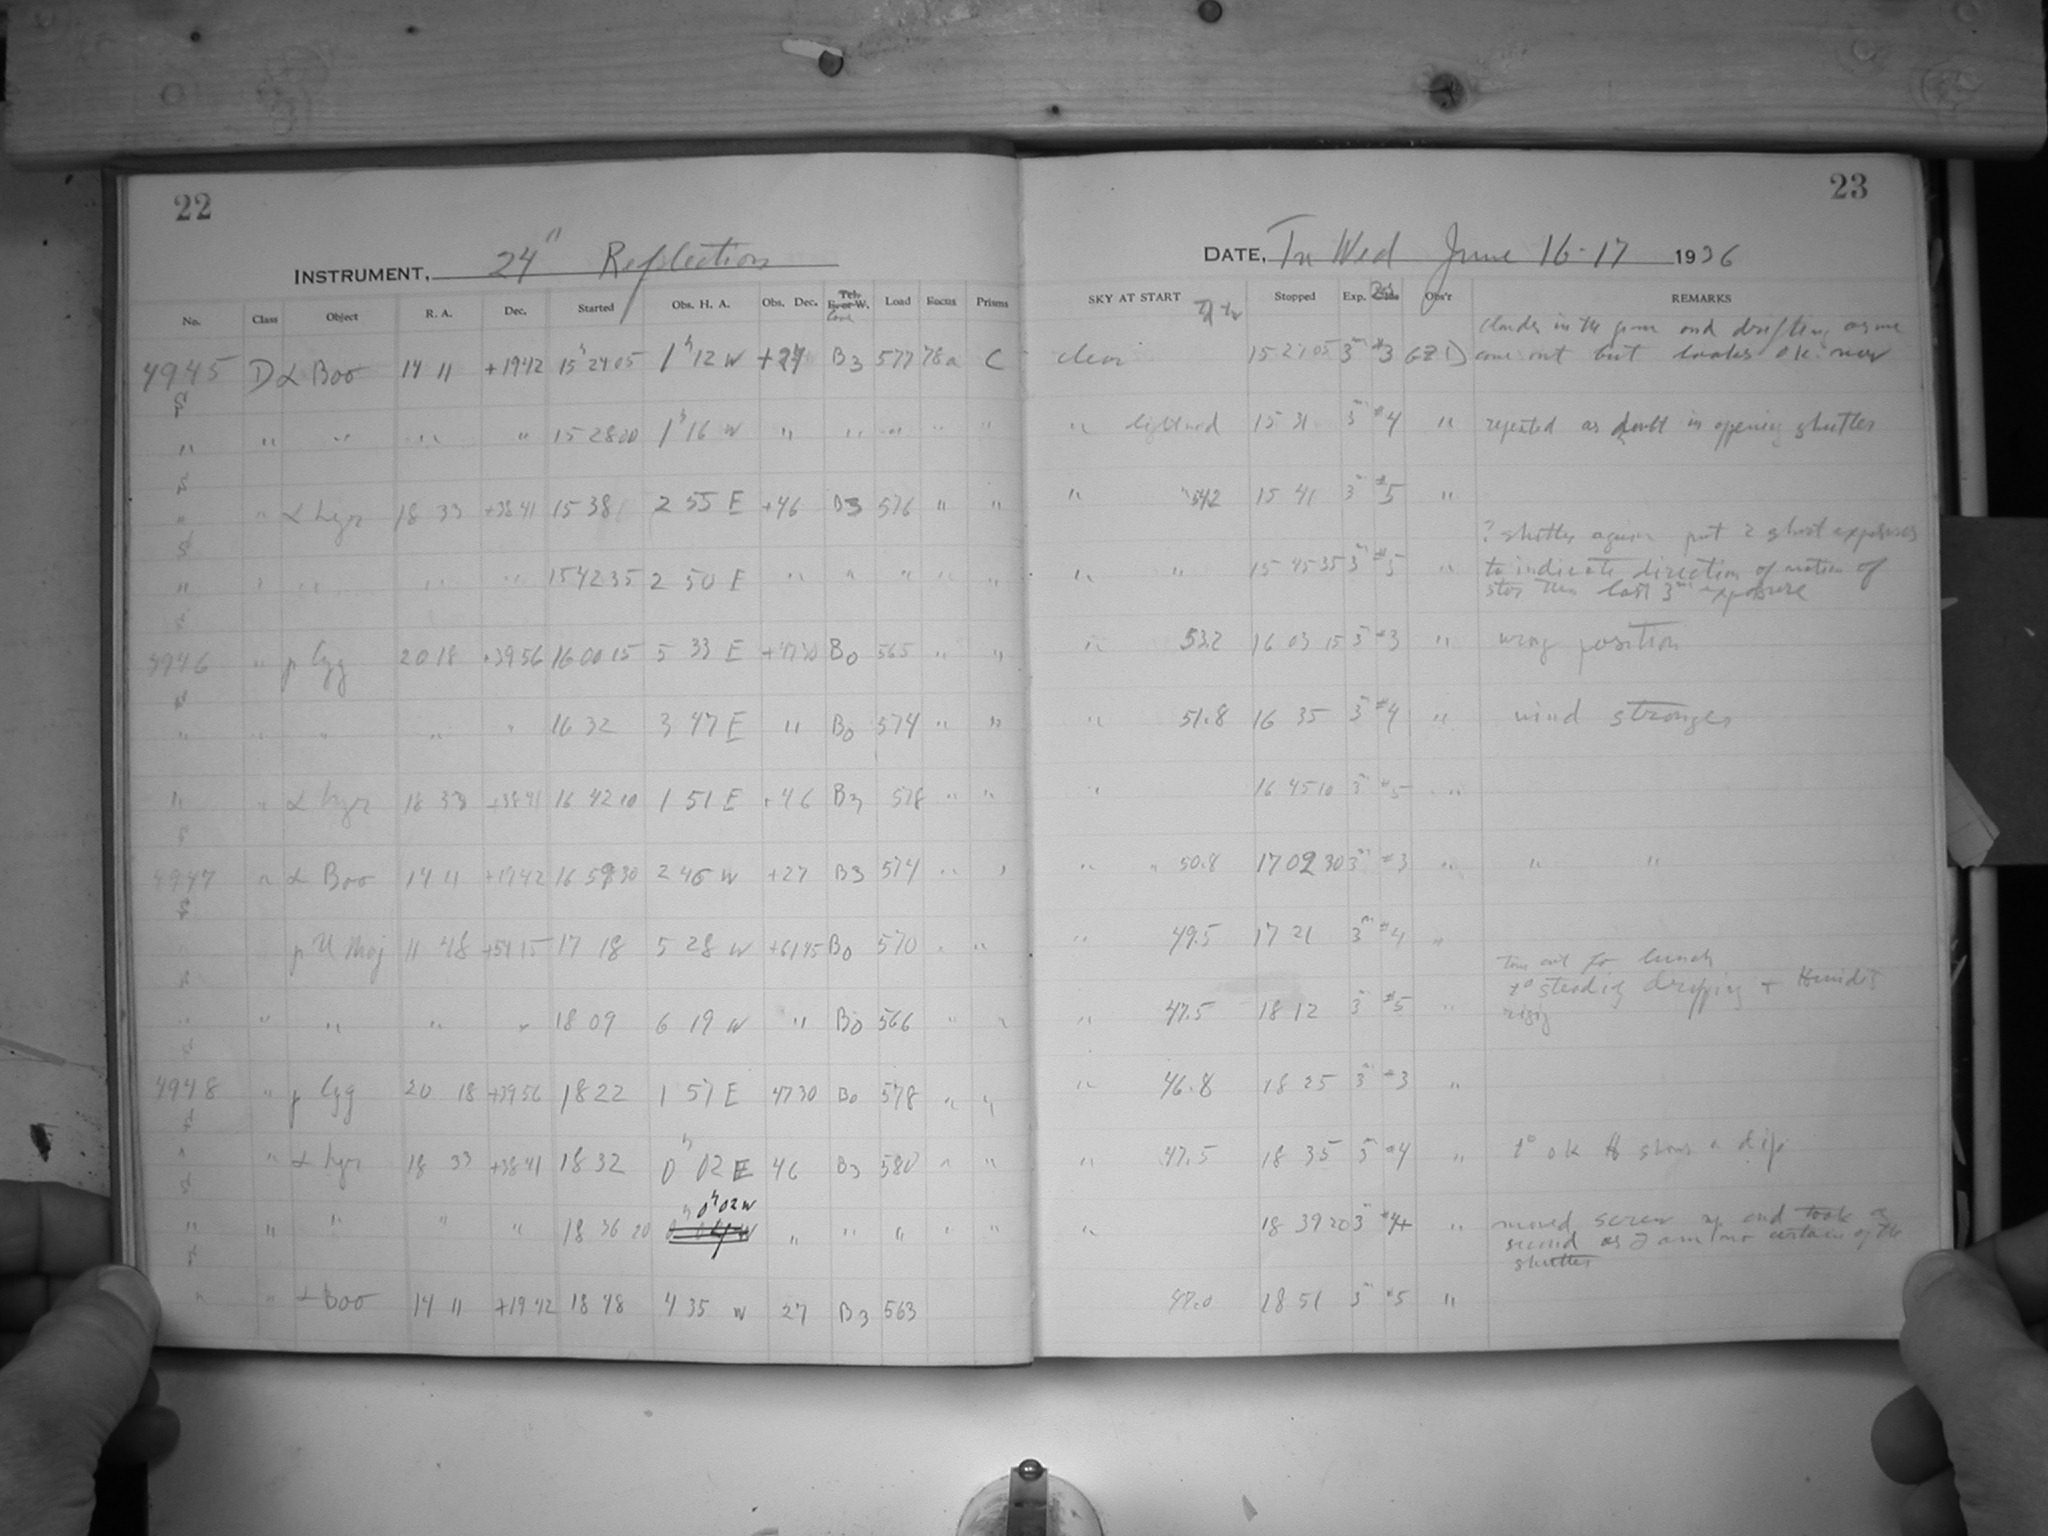 22
INSTRUMENT, 24" Reflection
No. Class Object R. A. Dec. Started Obs. H. A. Obs. Dec. Tel. E. or W. Load Focus Prisms
4945 D α Boo 14 11 +1942 15h 24 05 1h 12 W +27 B3 577 78a C
" " " " " 15 28 00 1h 16 W " " " " "
" " α Lyr 18 33 +38 41 15 38 2 55 E +46 B3 576 " "
" " " " " 15 42 35 2 50 E " " " " "
4946 " γ Cyg 20 18 +39 56 16 00 15 5 33 E +47 30 B0 565 " "
" " " " " 16 32 3 47 E " B0 574 " "
" " α Lyr 18 33 +38 41 16 42 10 1 51 E +46 B3 578 " "
4947 " α Boo 14 11 +19 42 16 59 30 2 46 W +27 B3 574 " "
γ U Maj 11 48 +54 15 17 18 5 28 W +61 45 B0 570 " "
" " " " " 18 09 6 19 W " B0 566 " "
4948 " γ Cyg 20 18 +39 56 18 22 1 57 E 47 30 B0 578 " "
" " α Lyr 18 33 +38 41 18 32 0h 02 E 46 B3 580 " "
0h 02 W
" " " " " 18 36 20 " " " " "
" " α Boo 14 11 +19 42 18 48 4 35 W 27 B3 563
23
DATE, Tu Wed June 16-17 1936
SKY AT START Stopped Exp. Obs'r REMARKS
clouds in the and drifting as we
clear 15 27 05 3m #3 GZD came out but looks ok now
" 15 31 3m #4 " repeated as doubt in opening shutter
" 54.2 15 41 3m #5 "
? shutter again put 2 short exposures
" " 15 45 35 3m #5 " to indicate direction of motion of
star then last 3m exposure
" 53.2 16 03 15 3m #3 " wrong position
" 51.8 16 35 3m #4 " wind stronger
" 16 45 10 3m #5 "
" " 50.8 17 02 30 3m #3 " " "
" 49.5 17 21 3m #4 "
time out for lunch
t° steadily dropping +
" 47.5 18 12 3m #5 " rising
" 46.8 18 25 3m #3 "
" 47.5 18 35 3m #4 " t° ok H shows a dip
" 18 39 20 3m #4 " moved screw up and took a
second as I am not certain of the
shutter
47.0 18 51 3m #5 "